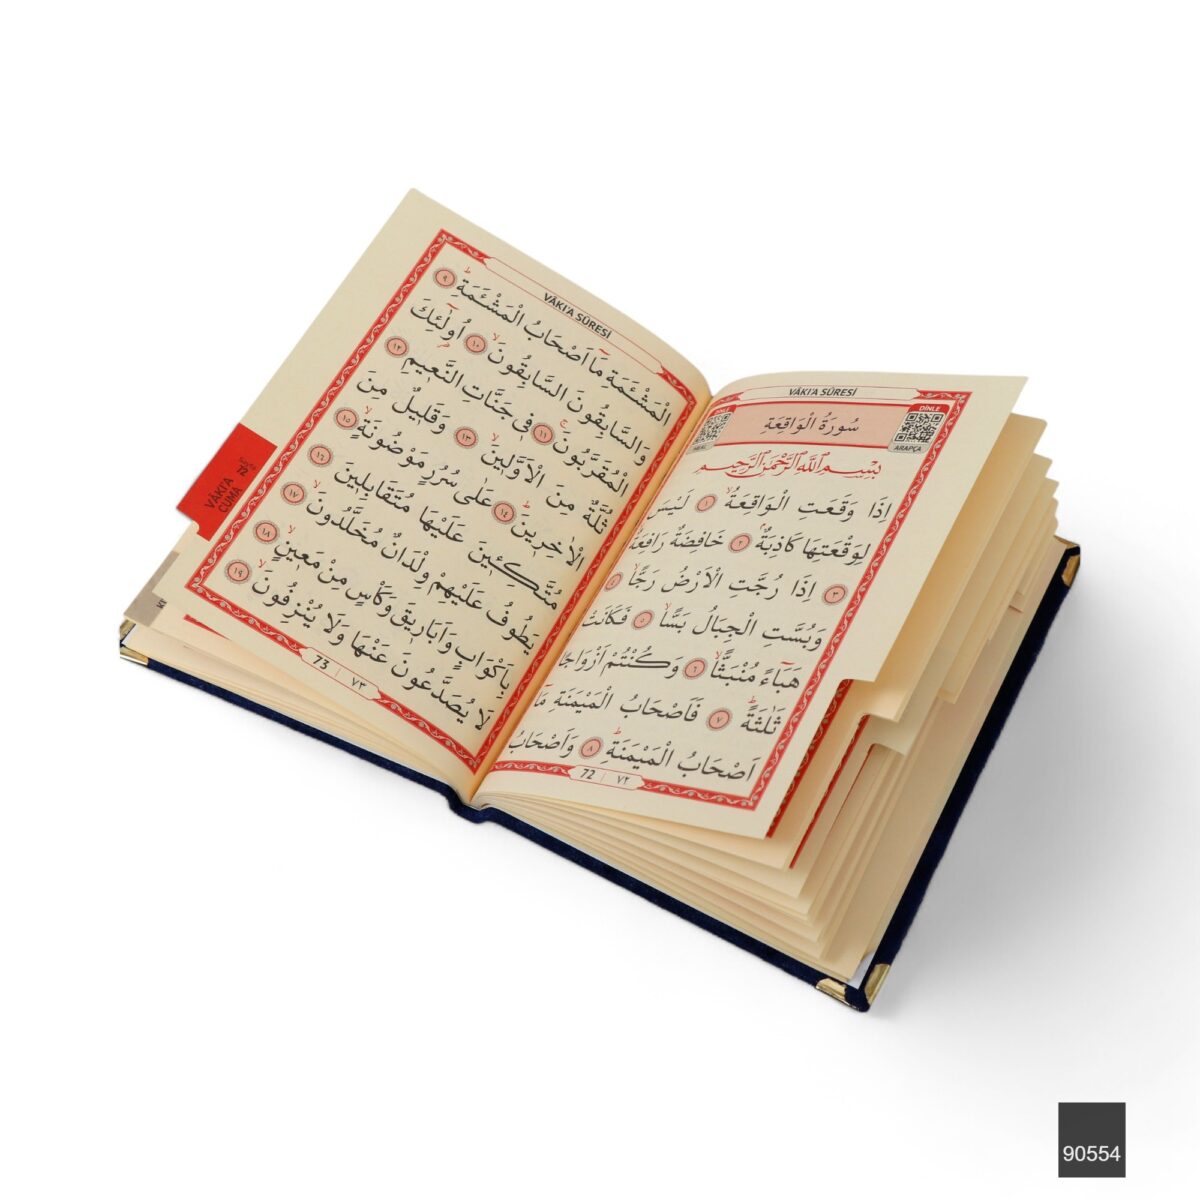 VÂKI'A SÛRESİ
DİNLE
DİNLE
سُورَةُ الْوَاقِعَةِ
MEAL
ARAPÇA
بِسْمِ اللهِ الرَّحْمٰنِ الرَّحِيمِ
اِذَا وَقَعَتِ الْوَاقِعَةُۙ ﴿١﴾ لَيْسَ
لِوَقْعَتِهَا كَاذِبَةٌۢ ﴿٢﴾ خَافِضَةٌ رَافِعَةٌۙ
﴿٣﴾ اِذَا رُجَّتِ الْاَرْضُ رَجًّاۙ ﴿٤﴾
وَبُسَّتِ الْجِبَالُ بَسًّاۙ ﴿٥﴾ فَكَانَتْ
هَبَٓاءً مُنْبَثًّاۙ ﴿٦﴾ وَكُنْتُمْ اَزْوَاجًا
ثَلٰثَةًۜ ﴿٧﴾ فَاَصْحَابُ الْمَيْمَنَةِ مَٓا
اَصْحَابُ الْمَيْمَنَةِۜ ﴿٨﴾ وَاَصْحَابُ
72 | ٧٢
VÂKI'A SÛRESİ
الْمَشْـَٔمَةِ مَٓا اَصْحَابُ الْمَشْـَٔمَةِۜ ﴿٩﴾
وَالسَّابِقُونَ السَّابِقُونَۙ ﴿١٠﴾ اُولٰٓئِكَ
الْمُقَرَّبُونَۚ ﴿١١﴾ فِي جَنَّاتِ النَّعِيمِ ﴿١٢﴾
ثُلَّةٌ مِنَ الْاَوَّلِينَۙ ﴿١٣﴾ وَقَلِيلٌ مِنَ
الْاٰخِرِينَۜ ﴿١٤﴾ عَلٰى سُرُرٍ مَوْضُونَةٍۙ ﴿١٥﴾
مُتَّكِـِٔينَ عَلَيْهَا مُتَقَابِلِينَ ﴿١٦﴾
يَطُوفُ عَلَيْهِمْ وِلْدَانٌ مُخَلَّدُونَۙ ﴿١٧﴾
بِاَكْوَابٍ وَاَبَارِيقَ وَكَأْسٍ مِنْ مَعِينٍۙ ﴿١٨﴾
لَا يُصَدَّعُونَ عَنْهَا وَلَا يُنْزِفُونَۙ ﴿١٩﴾
73 | ٧٣
VÂKI'A
CUMA
Sayfa
72
90554